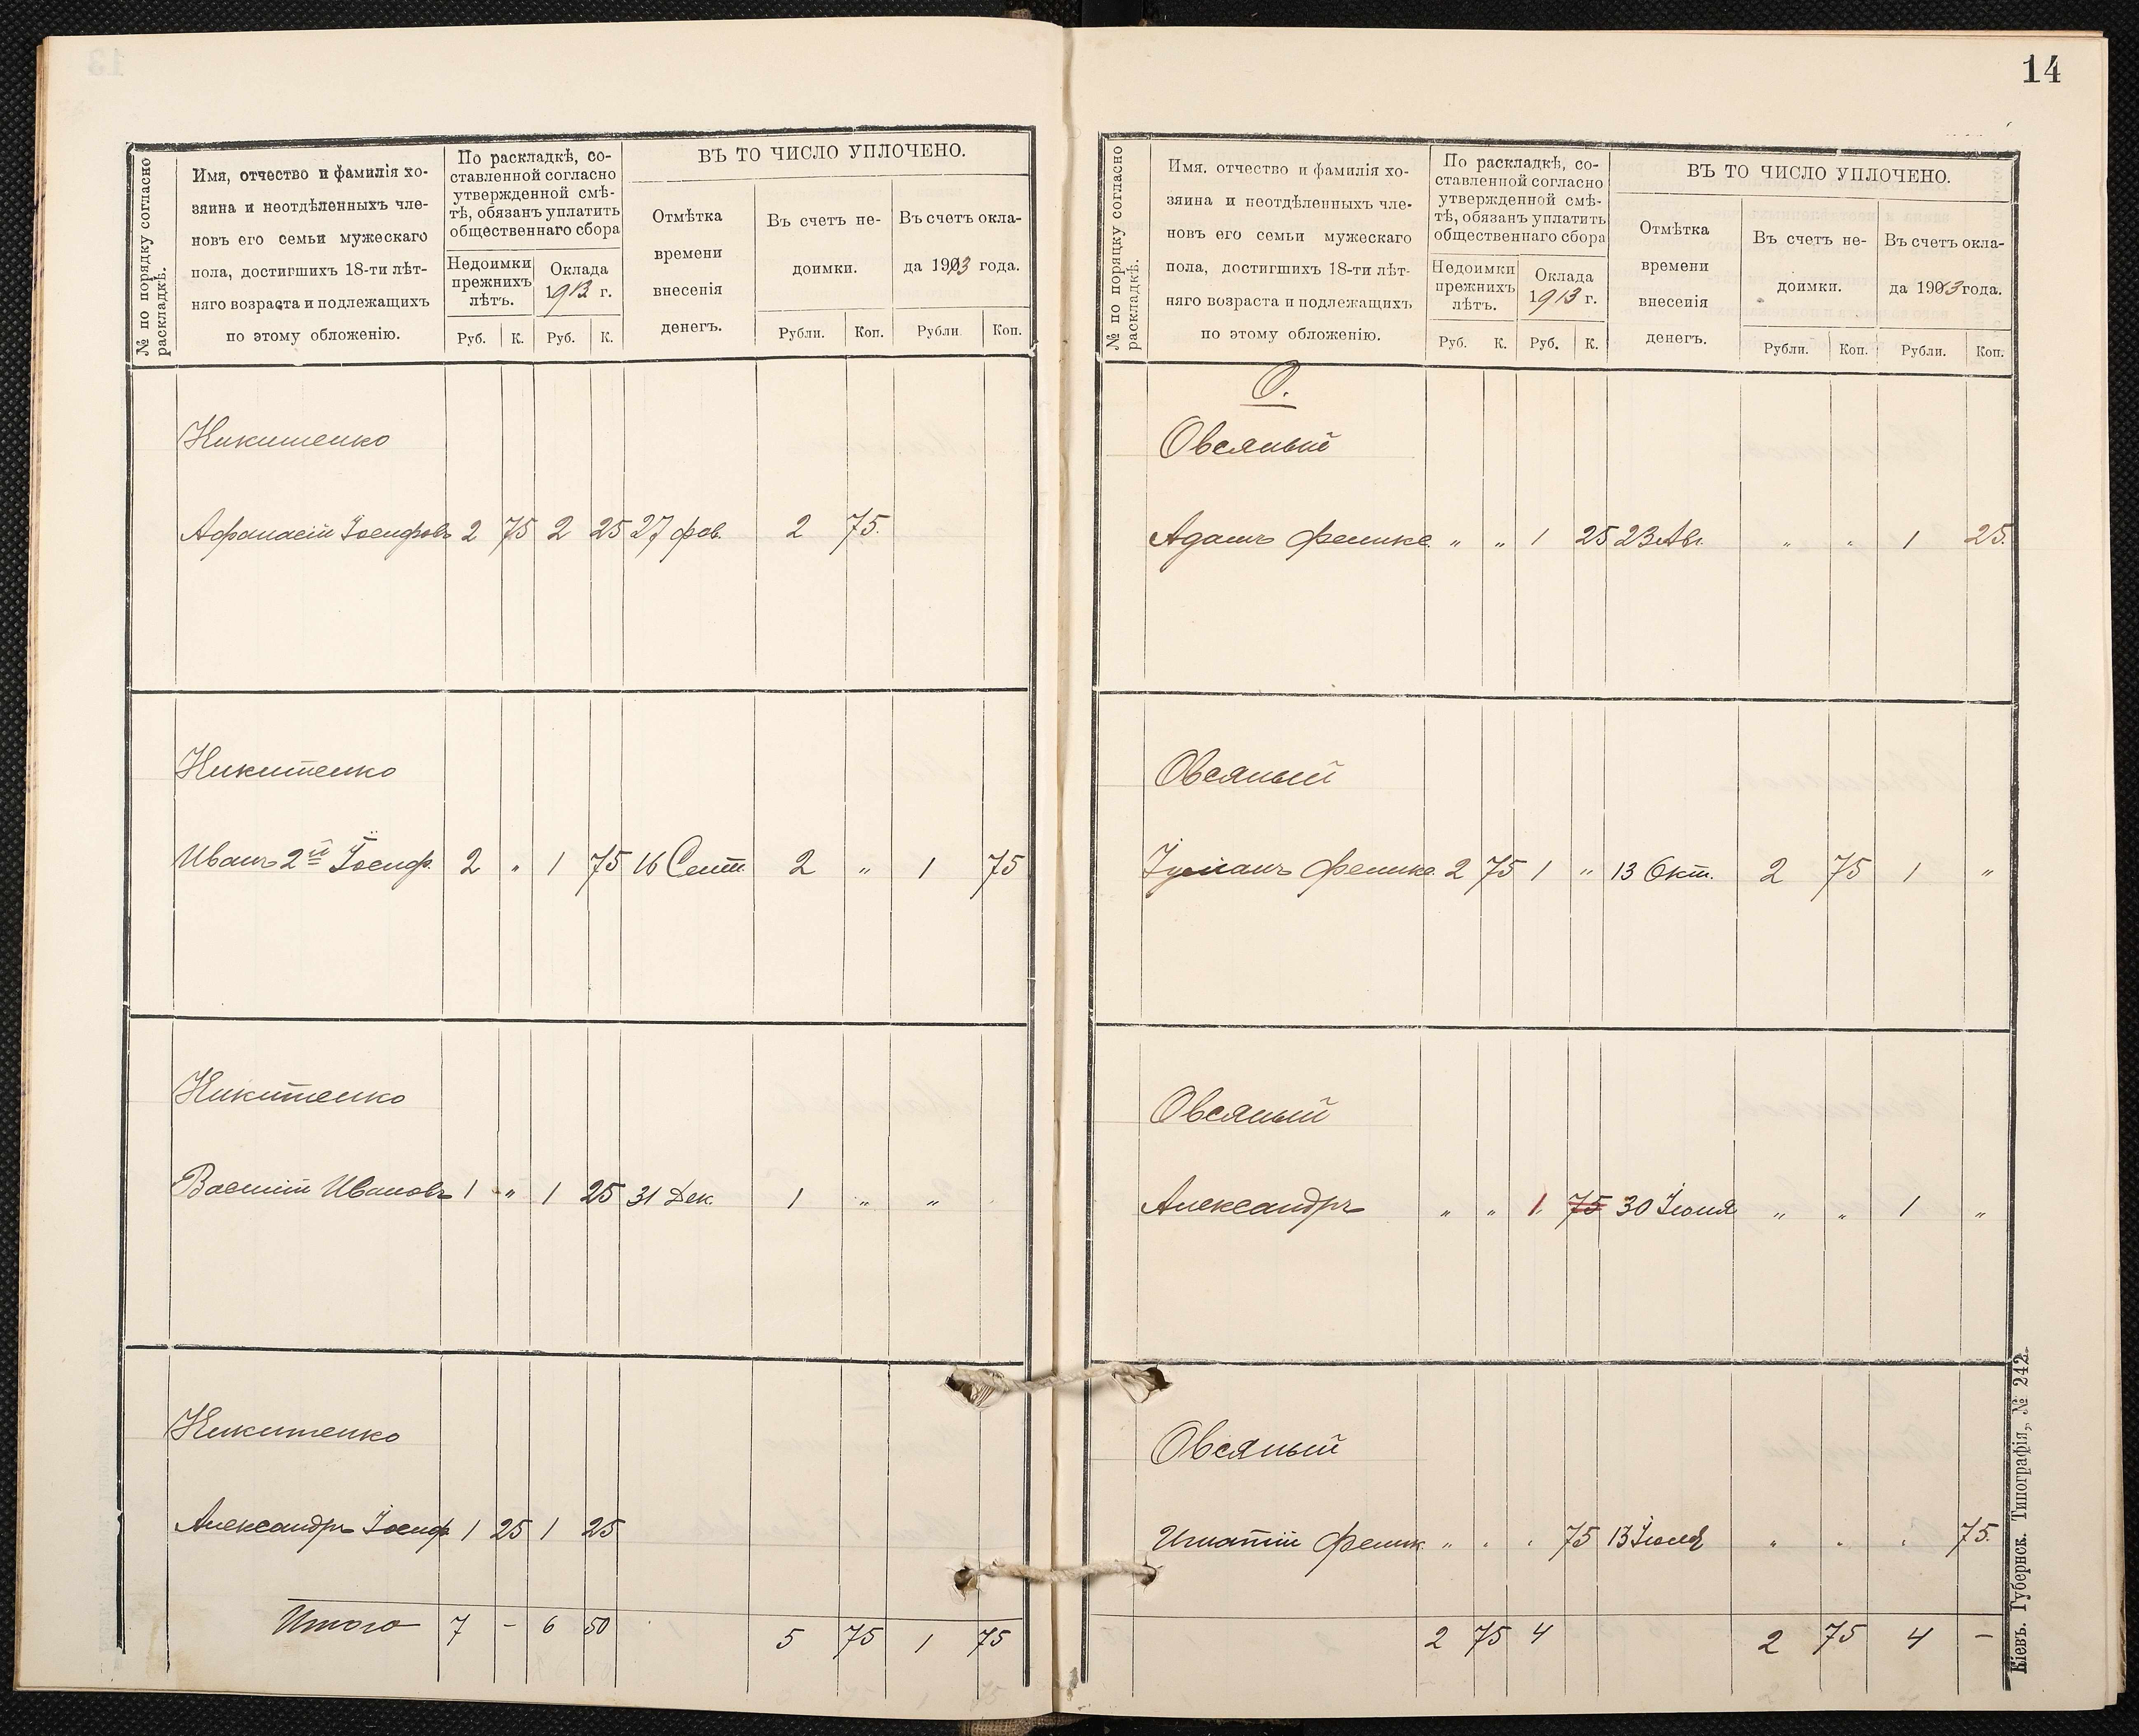 № по порядку согласно
раскладкѣ.
Имя, отчество и фамилія хо-
зяина и неотдѣленныхъ чле-
новъ его семьи мужескаго
пола, достигшихъ 18-ти лѣт-
няго возраста и подлежащихъ
по этому обложенію.
По раскладкѣ, со-
ставленной согласно
утвержденной смѣ-
тѣ, обязанъ уплатить
общественнаго сбора
Недоимки
прежнихъ
лѣтъ.
Оклада
1913 г.
Руб. К. Руб. К.
ВЪ ТО ЧИСЛО УПЛОЧЕНО.
Отмѣтка
времени
внесенія
денегъ.
Въ счетъ не-
доимки.
Въ счетъ окла-
да 1913 года.
Рубли. Коп. Рубли. Коп.
Никитенко
Афанасій Іосифовъ 2 75 2 25 27 фев. 2 75.
Никитенко
Иванъ 2й Іосиф. 2 " 1 75 16 Сент. 2 " 1 75
Никитенко
Василій Ивановъ 1 " 1 25 31 Дек. 1 " "
Никитенко
Александръ Іосиф. 1 25 1 25
Итого 7 - 6 50 5 75 1 75
14
№ по порядку согласно
раскладкѣ.
Имя, отчество и фамилія хо-
зяина и неотдѣленныхъ чле-
новъ его семьи мужескаго
пола, достигшихъ 18-ти лѣт-
няго возраста и подлежащихъ
по этому обложенію.
По раскладкѣ, со-
ставленной согласно
утвержденной смѣ-
тѣ, обязанъ уплатить
общественнаго сбора
Недоимки
прежнихъ
лѣтъ.
Оклада
1913 г.
Руб. К. Руб. К.
ВЪ ТО ЧИСЛО УПЛОЧЕНО.
Отмѣтка
времени
внесенія
денегъ.
Въ счетъ не-
доимки.
Въ счетъ окла-
да 1903 года.
Рубли. Коп. Рубли. Коп.
О.
Овсяный
Адамъ Феликс. " " 1 25 23 Авг. " " 1 25.
Овсяный
Іуліанъ Феликс. 2 75 1 " 13 Окт. 2 75 1 "
Овсяный
Александръ " " 1 75 30 Іюня " " 1 "
Овсяный
Игнатій Феликс " . . 75 13 Іюля " . . 75.
2 75 4 2 75 4 -
Кіевъ. Губернск. Типографія, № 242.